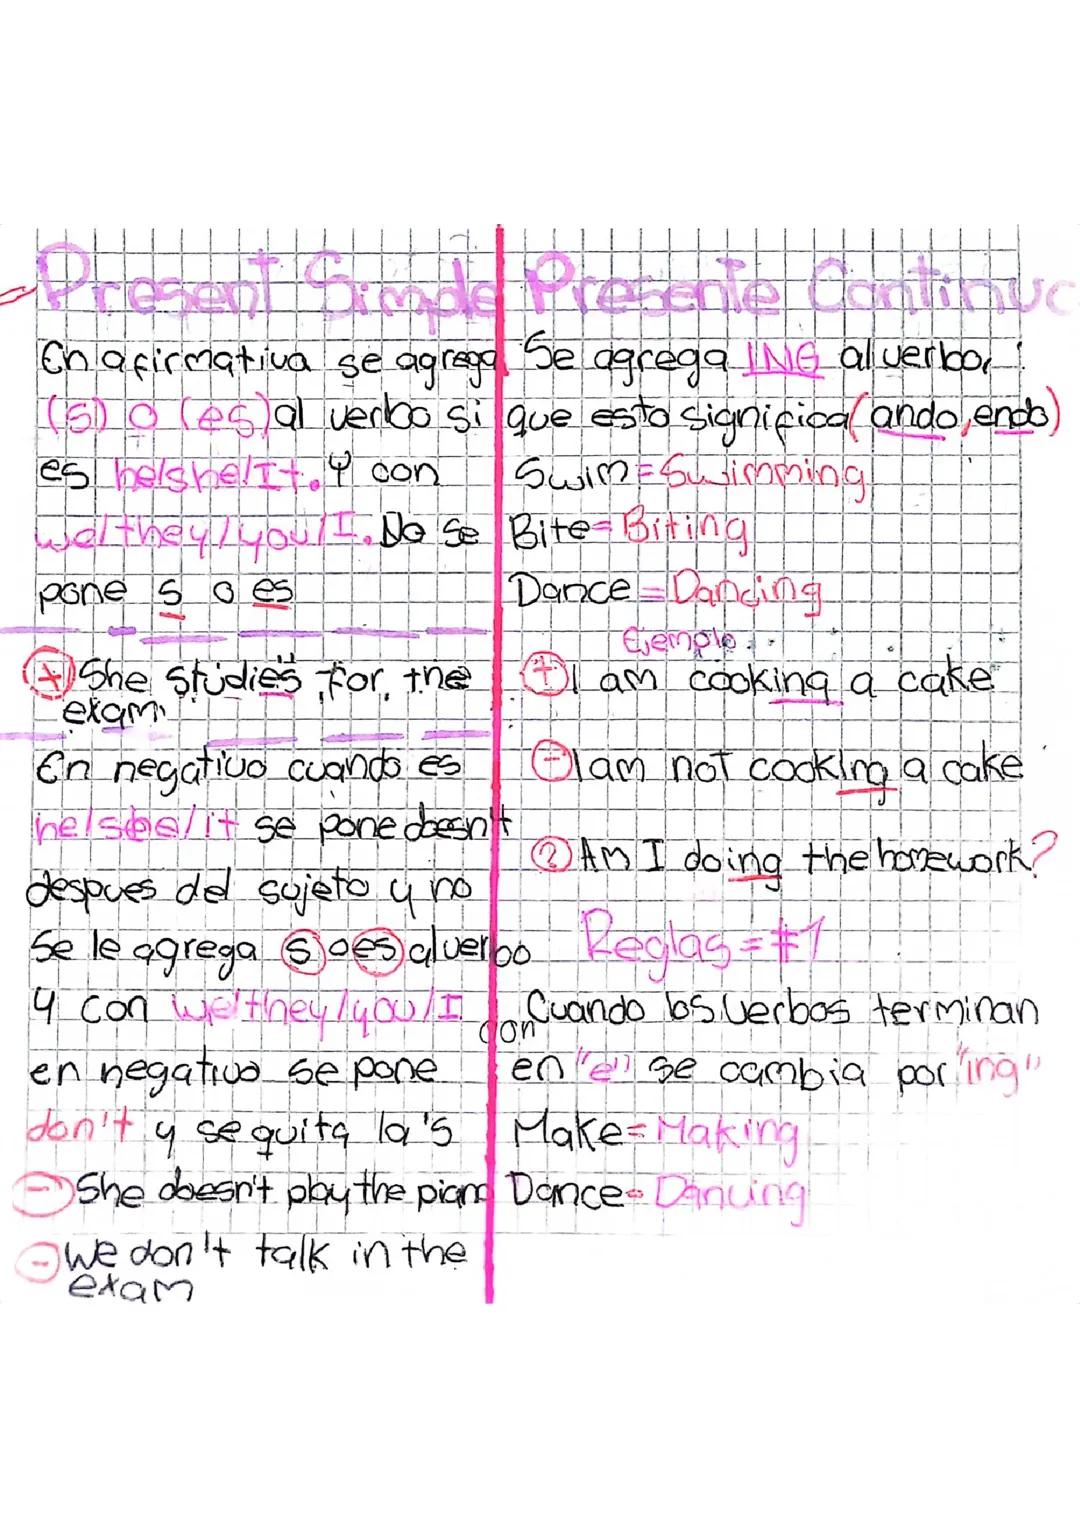 Present Simple
En afirmativa se agrega
(s) o (es) al verbo si
es he/she/It. Y con
we/they/you/I. No se
pone s o es
+ She studies for the
exam.
En negativo cuando es
he/she/it se pone doesn't
despues del sujeto y no
se le agrega s o es al verbo
y con we/they/you/I con
en negativo se pone
don't y se quita la 's
- She doesn't play the piano
- We don't talk in the
exam
Presente Continuo
Se agrega ING al verbo,
que esto significa (ando, endo)
Swim = Swimming
Bite = Biting
Dance = Dancing
Ejemplo:
+ I am cooking a cake
- I am not cooking a cake
? Am I doing the homework?
Reglas = #1
Cuando los verbos terminan
en "e" se cambia por "ing"
Make = Making
Dance = Dancing